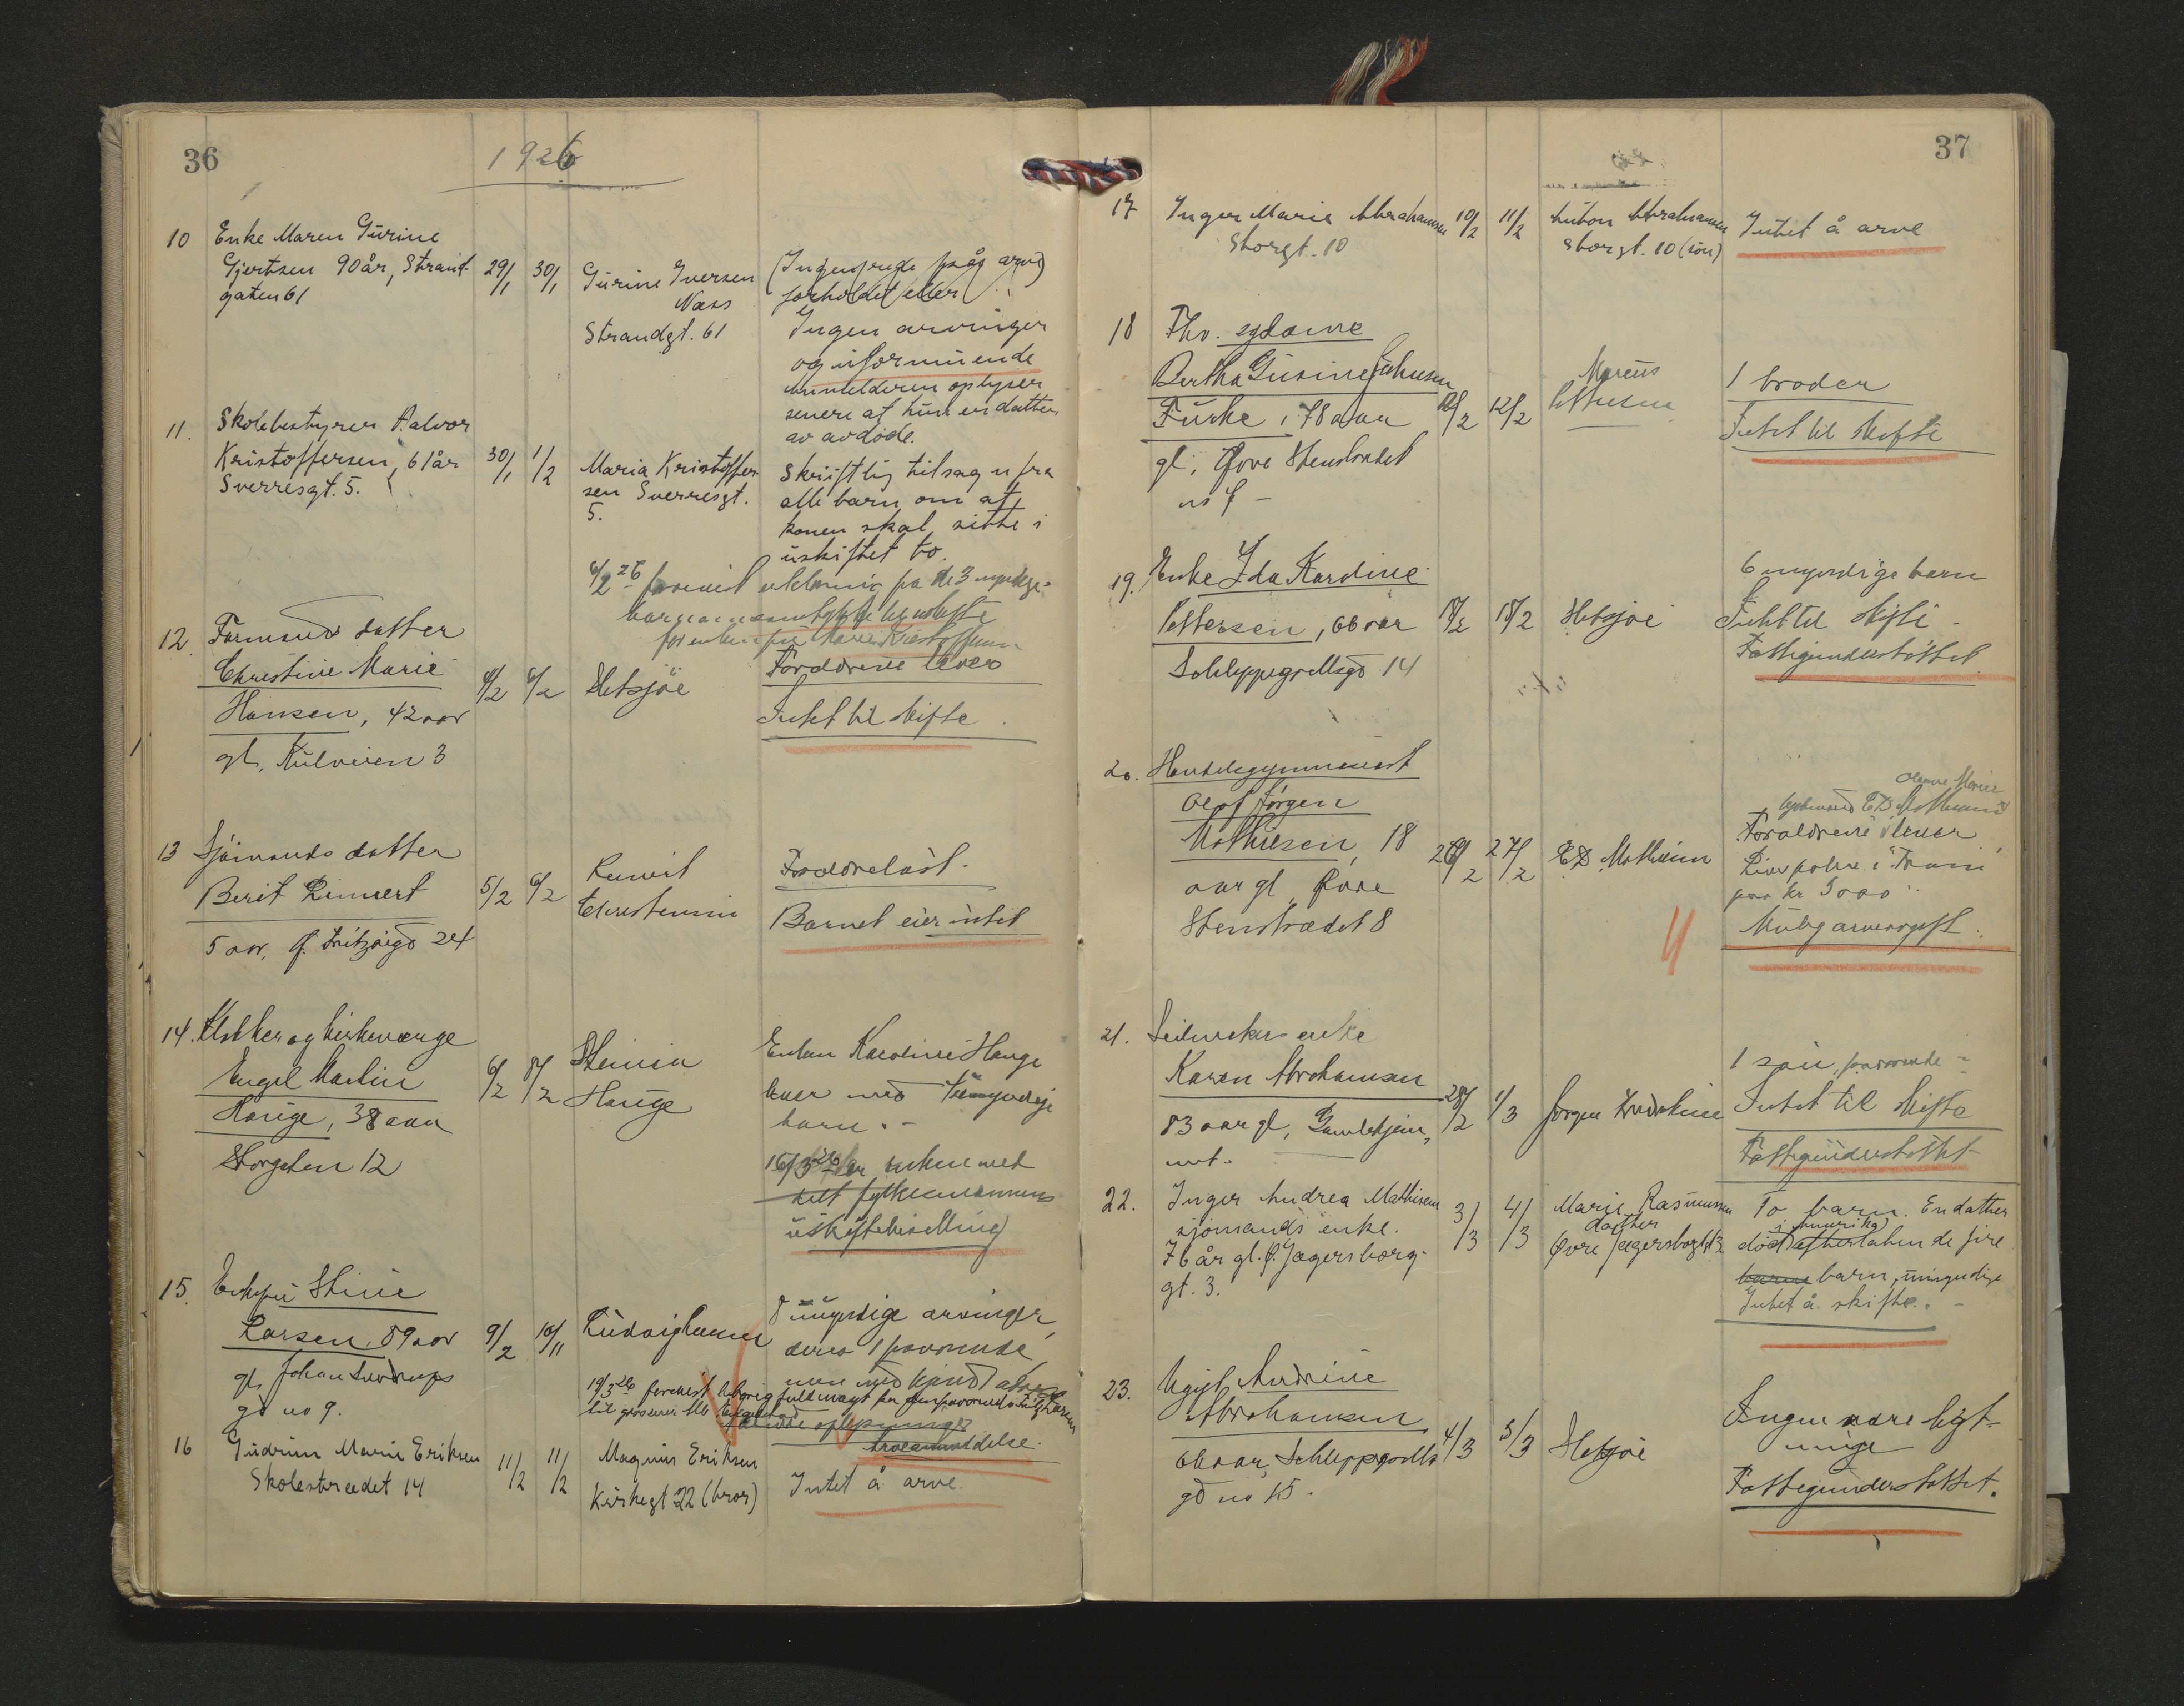 36
1926
10 Enke Maren Gurine
Gjertsen 90 år, Strand-
gaten 61
29/1 30/1
Gurine Iversen
Næss
Strandgt. 61
forholdet eller
Ingen arvinger
og uformuende
Anmelderen oplyser
senere at hun er datter
av avdøde.
11. Skolebestyrer Halvor
Kristoffersen, 61 år
Sverresgt. 5.
30/1 1/2
Maria Kristoffer-
sen Sverresgt.
5.
Skriftlig tilsagn fra
alle barn om at
konen skal sitte i
uskiftet bo.
6/2 26
12. datter
Christine Marie
Hansen, 42 aar
gl, Kulveien 3
4/2 6/2
Hetsjøe
Forældrene lever
Intet til skifte
13 Sjømands datter
Berit Linnert
5 aar, Ø. Fritzøegd 24
5/2 6/2
Christensen
Forældreløst.
Barnet eier intet
14. Klokker og kirkeværge
Engel Martin
Hauge, 38 aar
Storgaten 12
6/2 8/2
Hauge
Enken Karoline Hauge
lever med umyndige
barn. -
16/3 26 enken med
fylkesmannens
uskiftebevilling
15. Enkefru Stine
Larsen, 89 aar
gl, Johan Sverdrups
gd no 9.
9/2 10/11
Ludvig Larsen
8 myndige arvinger,
derav 1 fraværende,
men med kjendt
19/3 26 fremvist fuldmagt fra
til grosserer
arveanmeldelse.
16 Gudrun Marie Eriksen
Skolestrædet 14
11/2 11/2
Magnus Eriksen
Kirkegt 22 (bror)
Intet å arve.
37
17 Inger Marie Abrahamsen
Storgt. 10
10/2 11/2
Anton Abrahamsen
Storgt. 10 (sön)
Intet å arve
18 Fhv. sydame
Bertha Gusine Johnsen
Furke, 78 aar
gl, Øvre Stenstrædet
no 4 -
12/2
Marcus
1 broder
Intet til skifte
19. Enke Ida Karoline
Pettersen, 66 aar
Schleppegrellsgd 14
18/2 18/2
Hetsjøe
6 myndige barn
Intet til skifte -
Fattigunderstøttet.
20. Handelsgymnasiast
Olof Jörgen
Mathiesen, 18
aar gl, Øvre
Stenstrædet 8
26/2 27/2
E.D. Mathiesen
Olava Marie
E.D. Mathiesen
Forældrene lever
Livspolise i
paa kr 5000
Mulig arveavgift.
21. Seilmakerenke
Karen Abrahamsen
83 aar gl, Gamlehjem-
met.
28/2 1/3
Jørgen
1 søn, fraværende -
Intet til skifte
Fattigunderstøttet
22. Inger Andrea Mathisen
sjömands enke.
76 år gl. Ø. Jegersborg-
gt. 3.
3/3 4/3
Marie Rasmussen
datter
Øvre Jegersborgt 3
To barn. En datter
i Amerika
död efterlatende fire
barn, umyndige
Intet å skifte. -
23. Ugift Andrine
Abrahamsen
66 aar, Schleppegrells
gd no 15.
4/3 5/3
Hetsjøe
Ingen nære slægt-
ninge
Fattigunderstøttet.